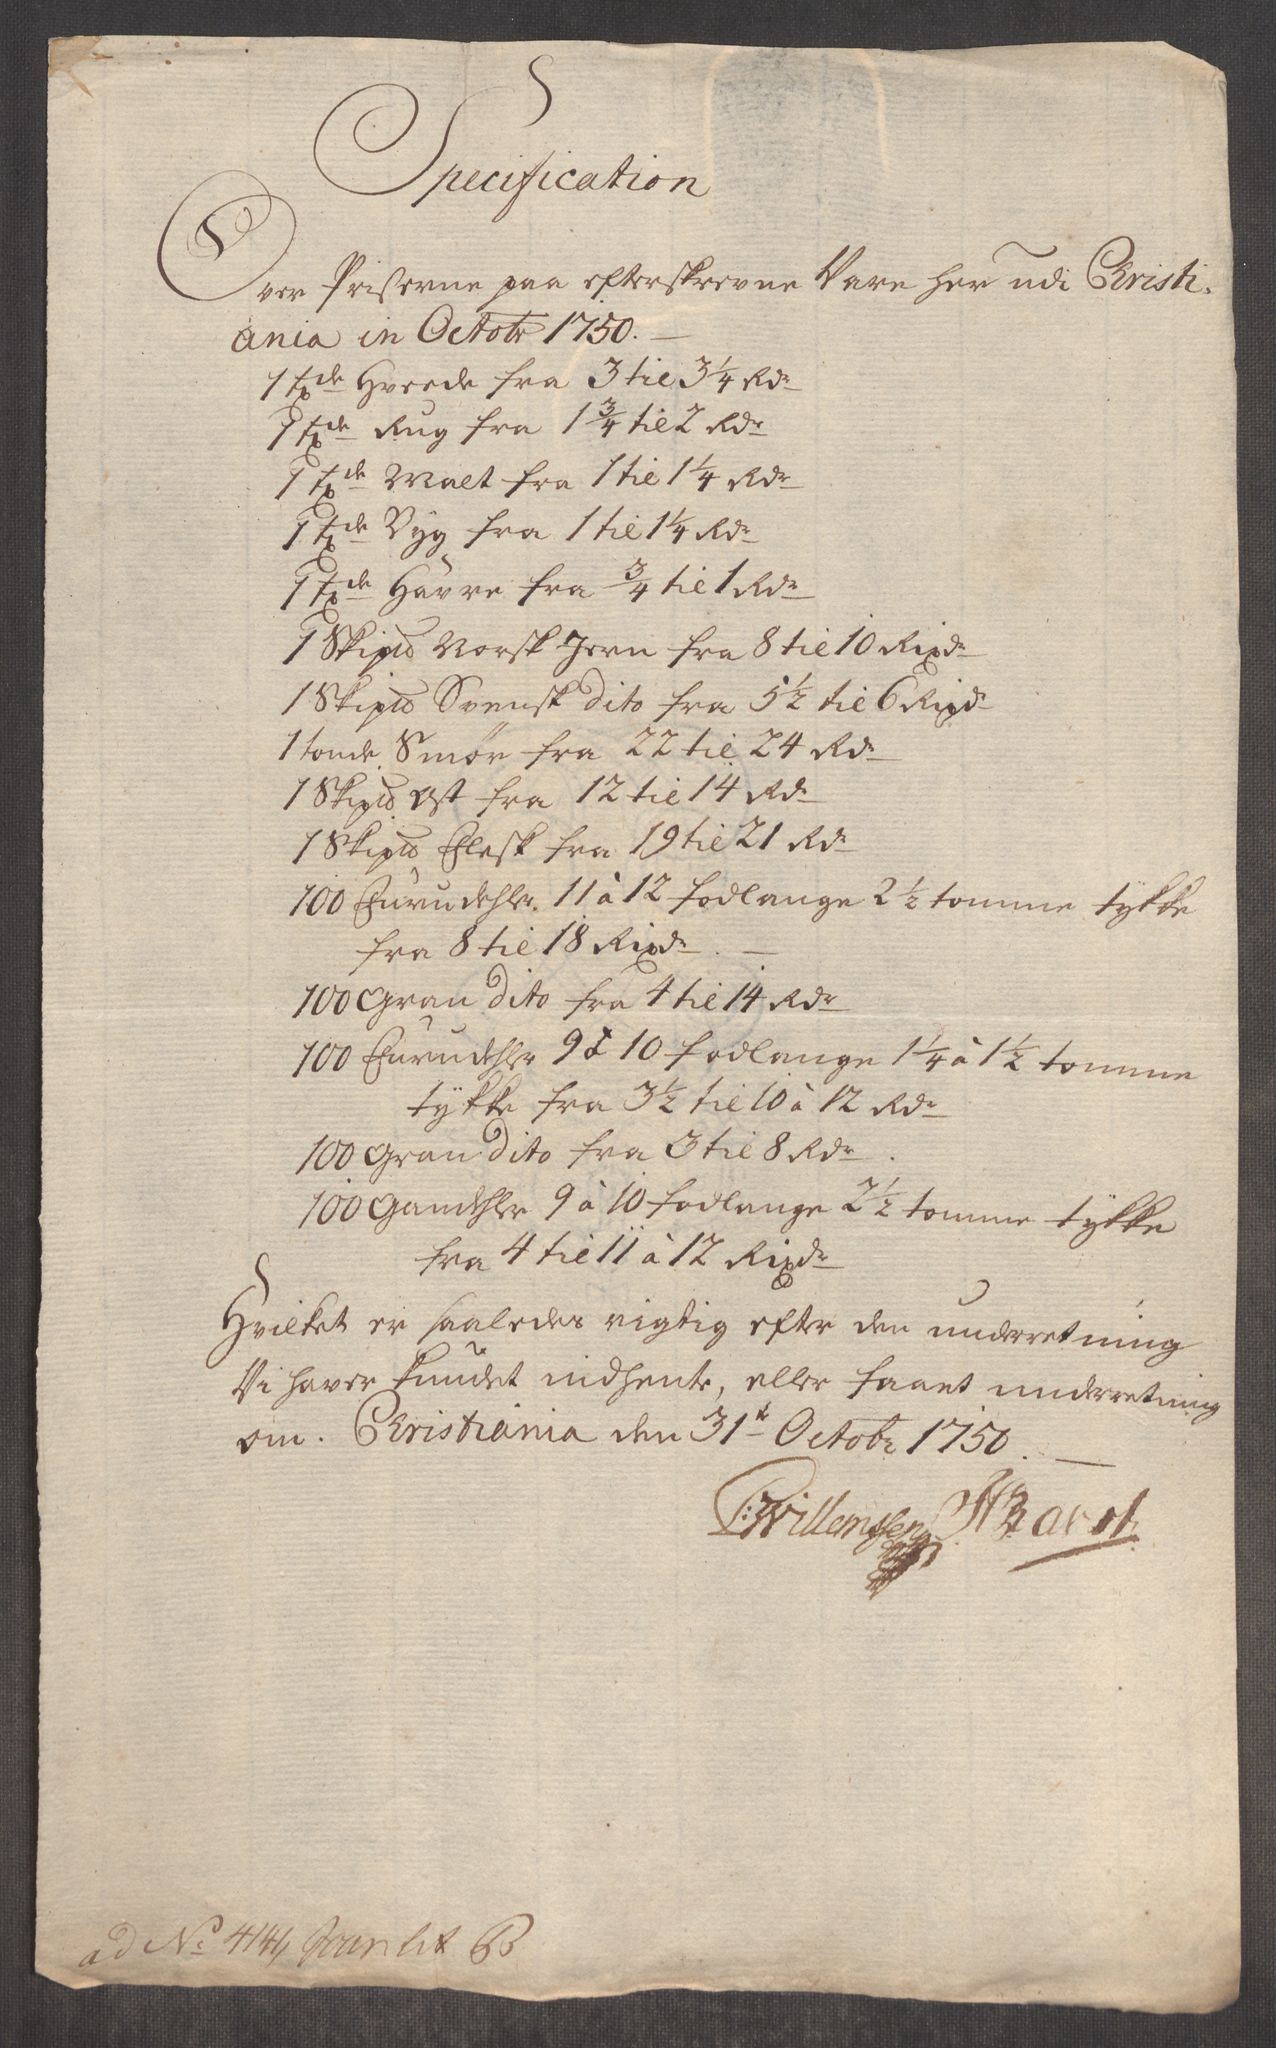 Specification
Over Priserne paa efterskrevne Vare her udi Christi-
ania in Octobr 1750. —
1 tde Hvede fra 3 til 3 1/4 Rdr
1 tde Rug fra 1 3/4 til 2 Rdr
1 tde Malt fra 1 til 1 1/4 Rdr
1 tde Byg fra 1 til 1 1/4 Rdr
1 tde Havre fra 3/4 til 1 Rdr
1 Skipd Norsk Jern fra 8 til 10 Rixdr
1 Skipd Svensk dito fra 5 1/2 til 6 Rixdr
1 tonde Smör fra 22 til 24 Rdr
1 Skipd Ost fra 12 til 14 Rdr
1 Skipd Flesk fra 19 til 21 Rdr
100 Furudehler 11 à 12 fodlange 2 1/2 tomme tykke
fra 8 til 18 Rixdr. —
100 Gran dito fra 4 til 14 Rdr
100 Furudehler 9 à 10 fodlange 1 1/4 à 1 1/2 tomme
tykke fra 3 1/2 til 10 à 12 Rdr
100 Gran dito fra 3 til 8 Rdr.
100 Grandehler 9 à 10 fodlange 2 1/2 tomme tykke
fra 4 til 11 à 12 Rixdr
Hvilket er saaledes rigtig efter den underretning
Vi haver kundet indhente, eller faaet underretning
om. Christiania den 31t Octobr 1750. —
Willemsen
ad No 414